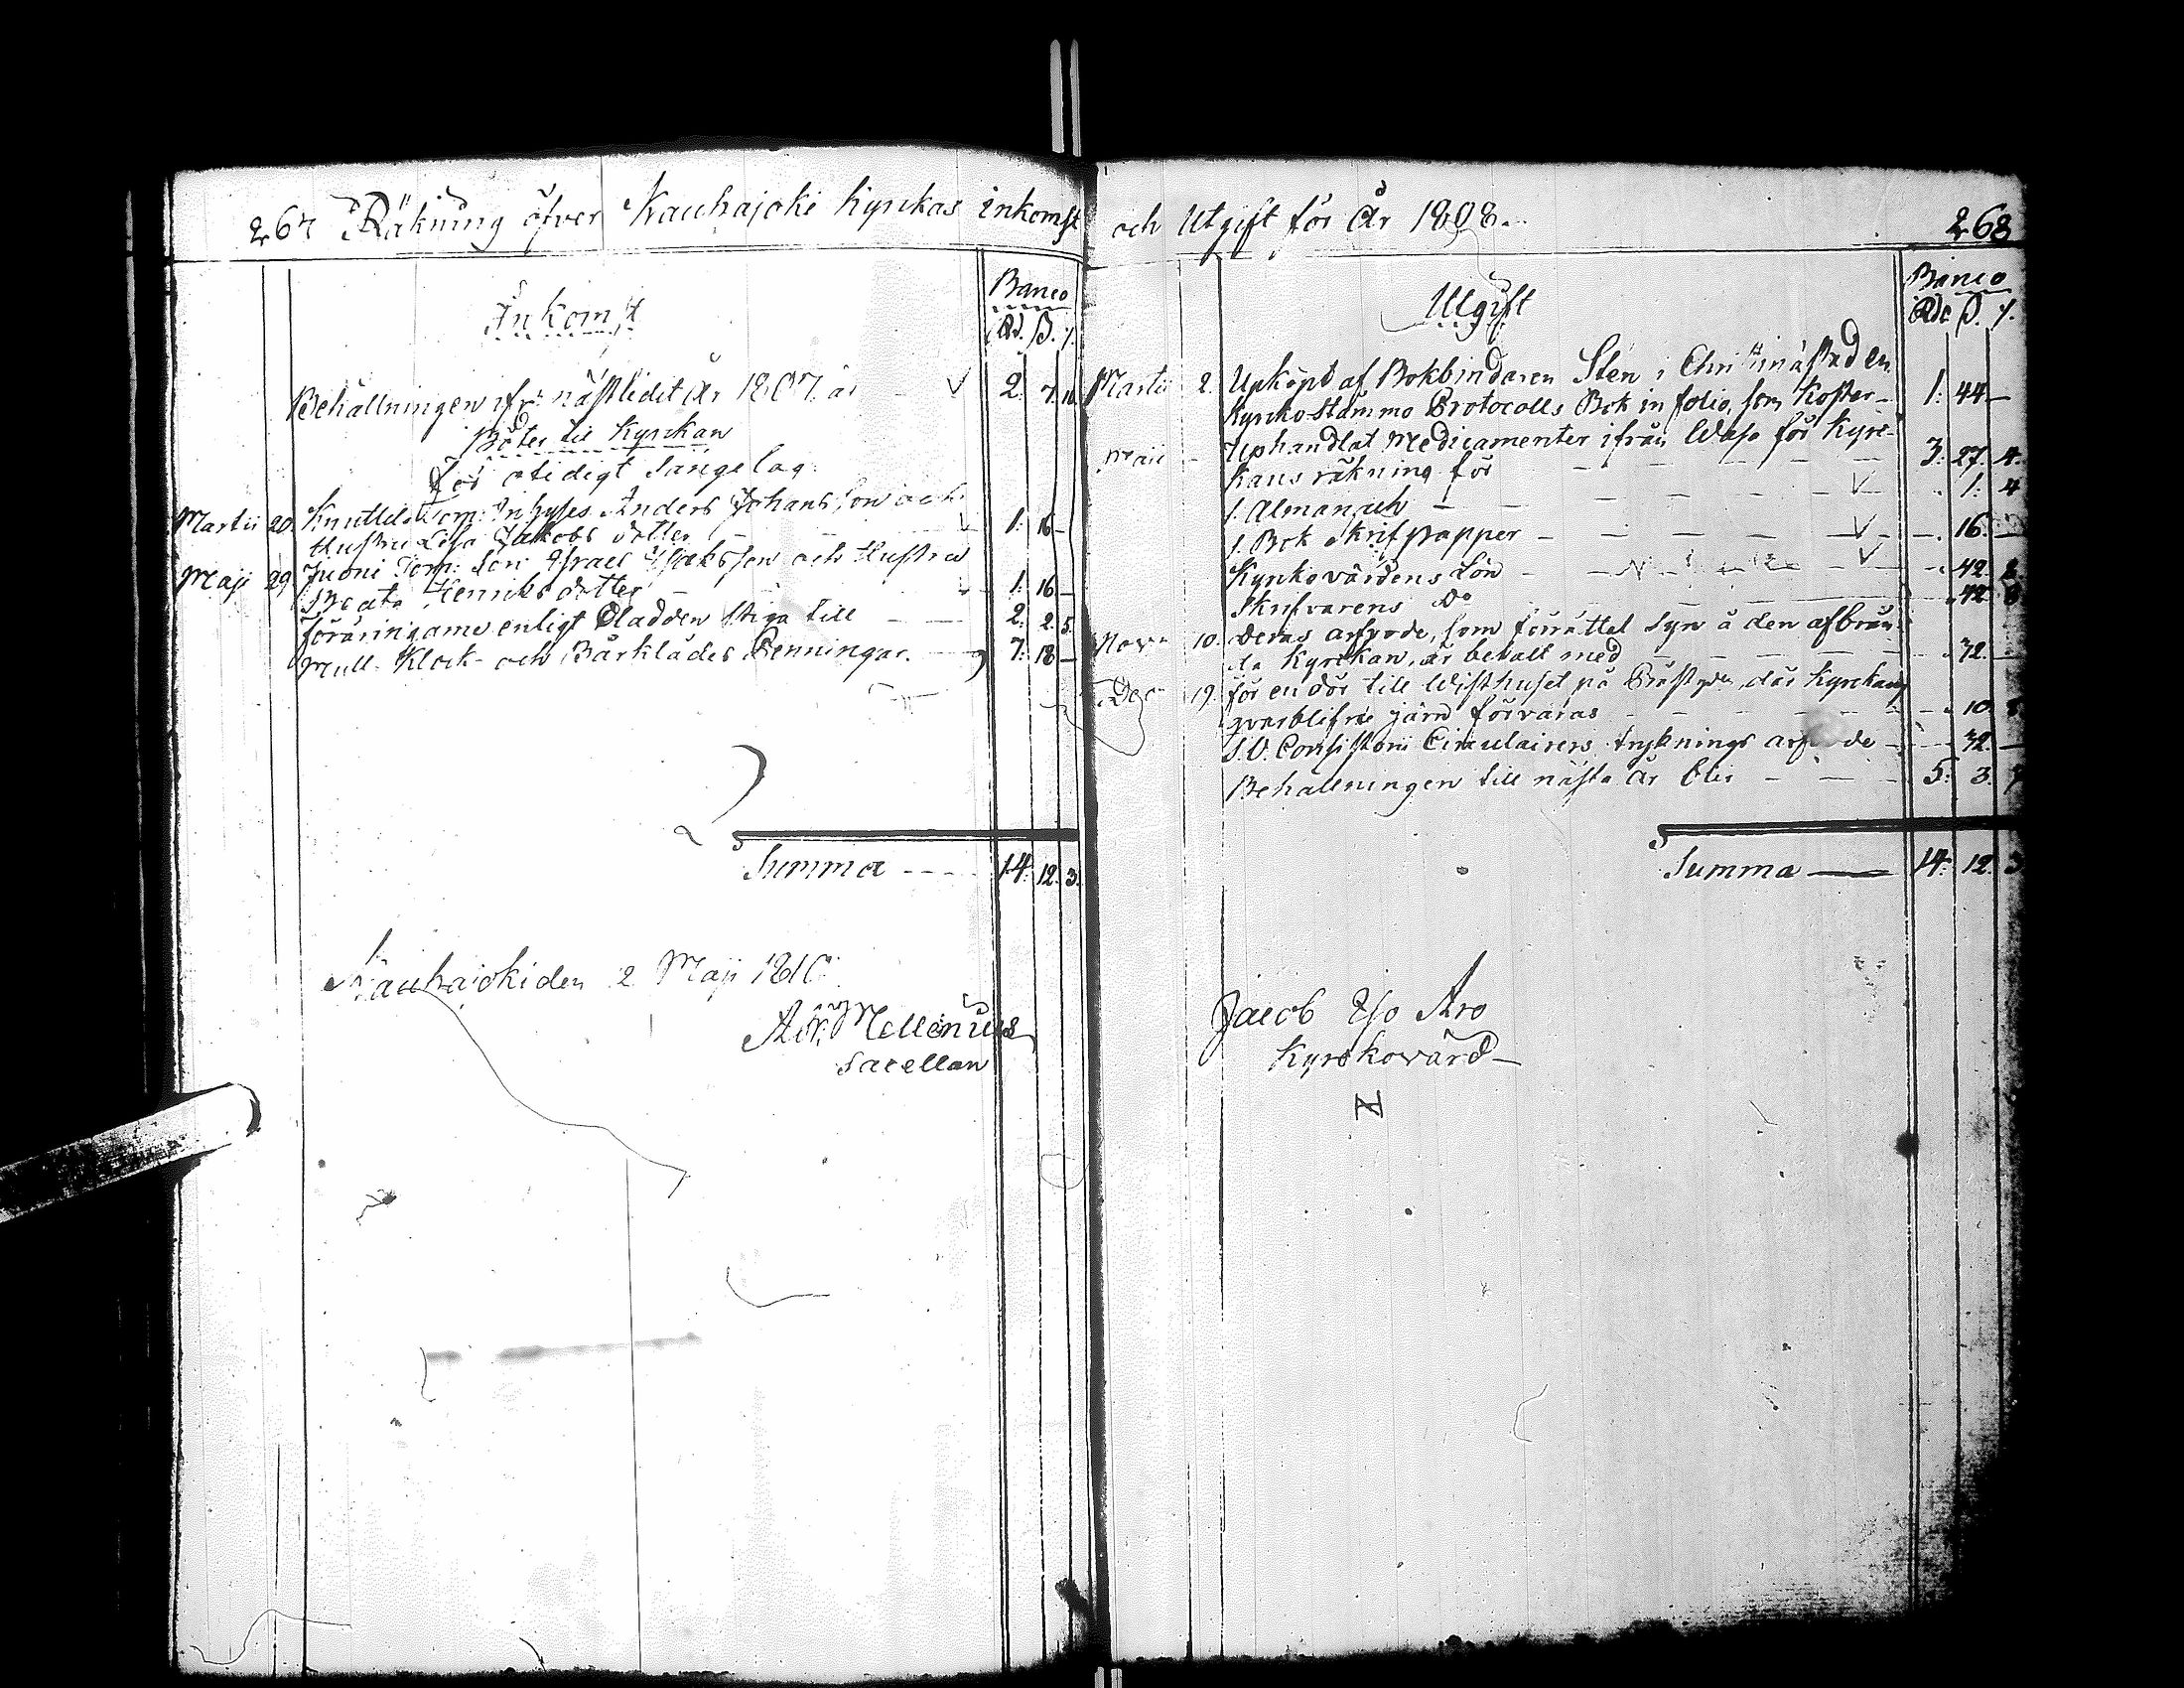 267 Räkning öfver Kauhajoki kyrkas inkomst
Inkomst
Banco
Rd. ß. r.
Behållningen ifr: nästledit år 1807. är 2. 7. 10.
Böter til kyrkan
för otidigt sängelag.
Martii 20. Knuttila Tom: Inhyses Anders Johansson och
Hustru Lisa Jakobs dotter 1: 16 —
Maji 29 Juoni Tom: son Israel Isaksson och Hustru
Beata Henriks dotter — 1: 16 —
föräringarne enligt Cladden stiga till — 2: 2. 5.
Mull- Klock- och Bårklädes Penningar. — 7: 18 —
Summa ---- 14: 12. 3.
Kauhajoki den 2 Maji 1810.
Mellenius
Sacellan
och Utgift för År 1808. 268
Utgift
Banco
Rdr ß. r.
Martii 2. Upköpt af Bokbindaren Sten i Christinästad en
Kyrko-stämmo Protocolls Bok in folio, som kostar — 1: 44 —
Maii — Uphandlat Medicamenter ifrån Wasa för Kyrc-
kans räkning för — 3: 27. 4.
1. Almanach — 1: 4
1. Bok Skrifpapper — 16. —
Kyrkovärdens Lön — 42. 8.
Skrifvarens Do 42 8
Nov: 10. Deras arfvode, som förrättat Syn å den afbrän-
da Kyrckan, är betalt med — 32. —
Dec: 19. för en dör till Wisthuset på Prästgdn, där Kyrckans
qvarblifne järn förvaras — 10. 8
S. V. Consistorii Circulairers tryknings arfvode — 32. —
Behållningen till nästa År blir — 5: 3.
Summa — 14: 12. 3
Jacob Aro
Kyrkovärd —